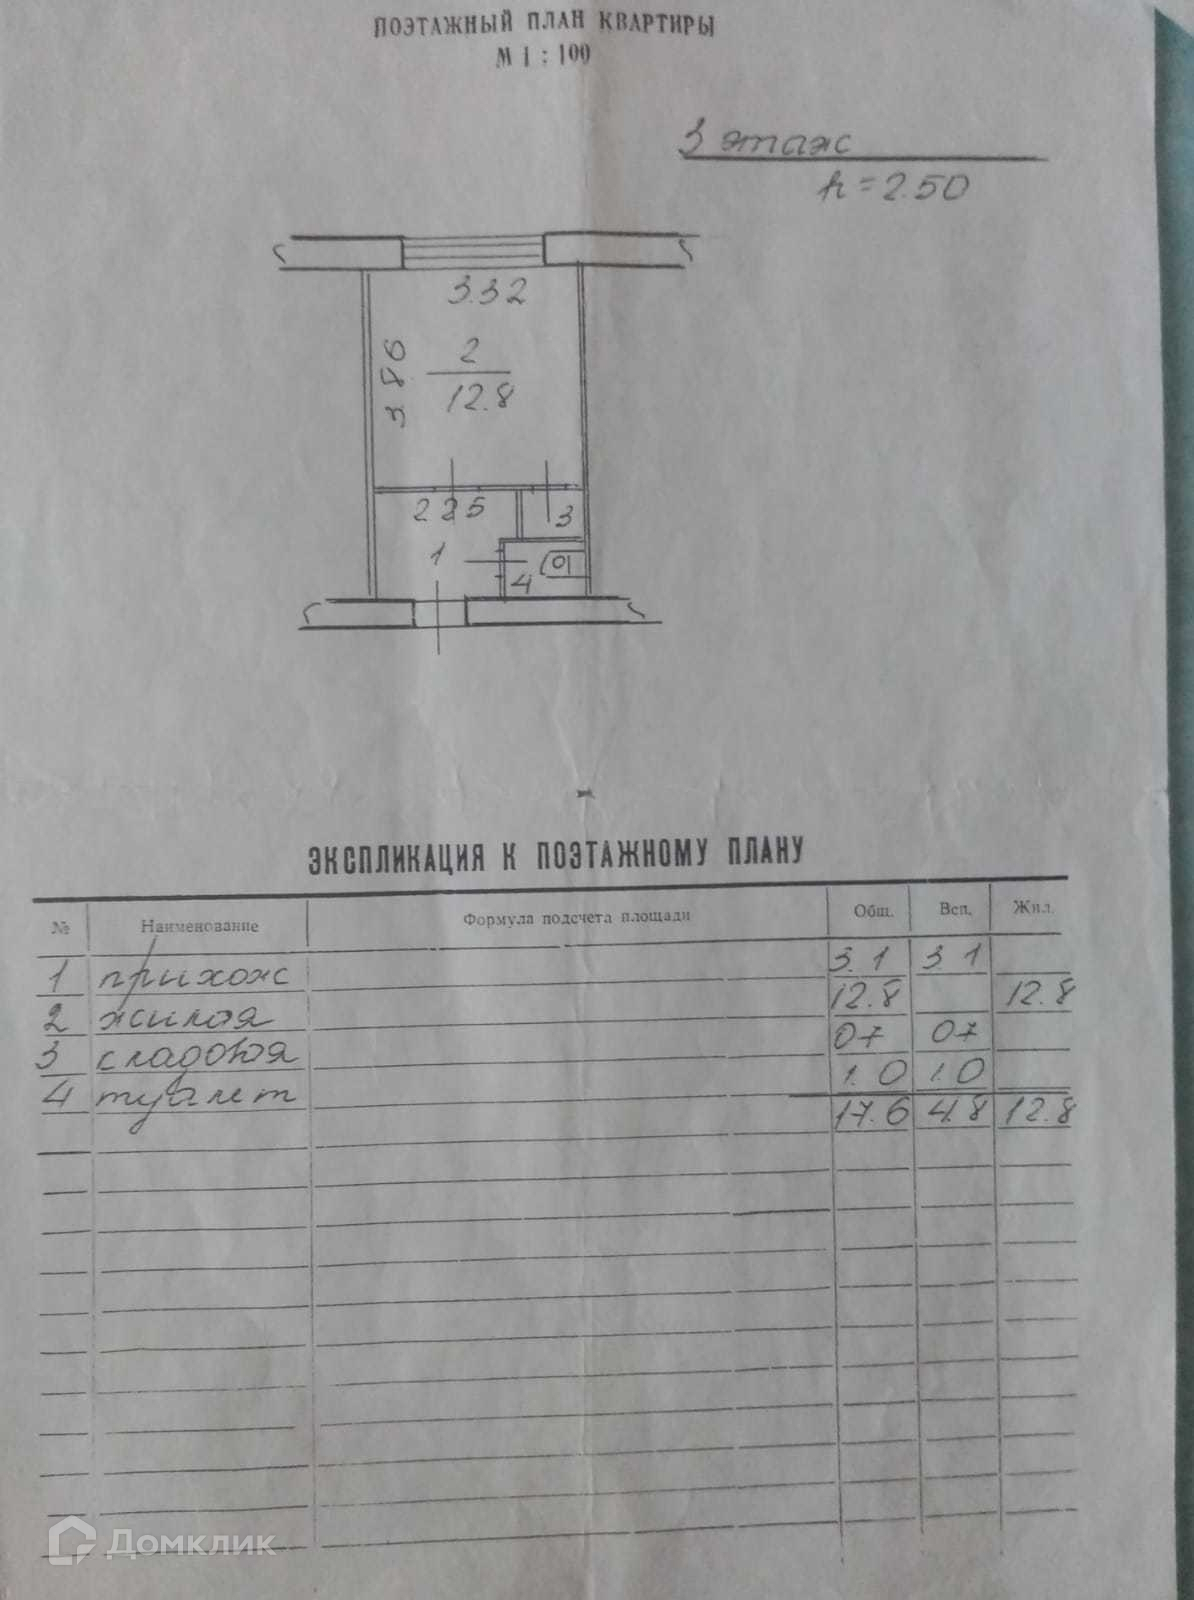 ПОЭТАЖНЫЙ ПЛАН КВАРТИРЫ
М 1 : 100
3 этаж
h=2.50
3.32
3.86
2
12.8
2.25
3
1
4
ЭКСПЛИКАЦИЯ К ПОЭТАЖНОМУ ПЛАНУ
№ Наименование Формула подсчета площади Общ. Всп. Жил.
1 прихож 3.1 3.1
2 жилая 12.8 12.8
3 кладовая 0.7 0.7
4 туалет 1.0 1.0
17.6 4.8 12.8
Домклик